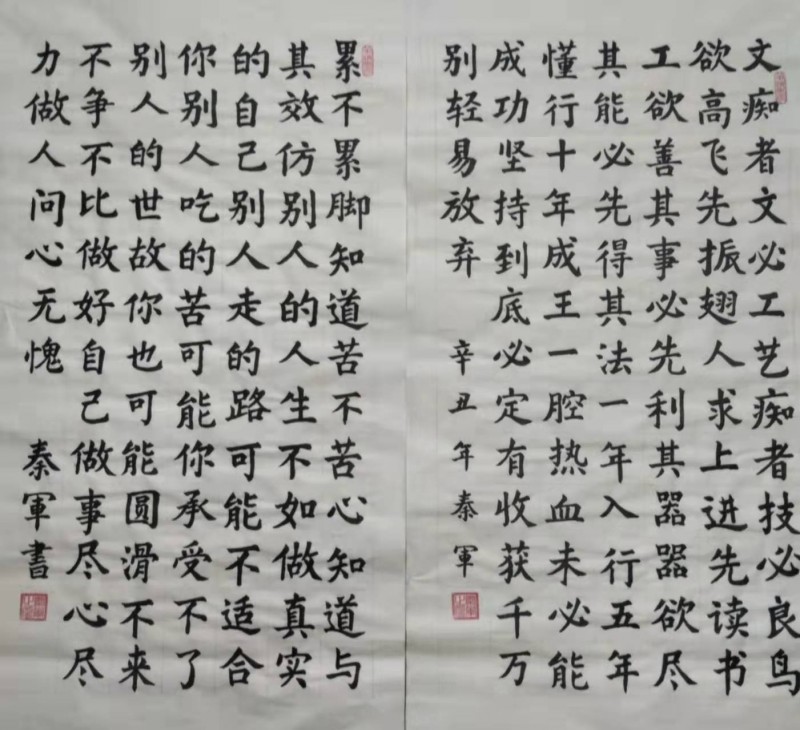 文痴者文必工艺痴者技必良鸟
欲高飞先振翅人求上进先读书
工欲善其事必先利其器器欲尽
其能必先得其法一年入行五年
懂行十年成王一腔热血未必能
成功坚持到底必定有收获千万
别轻易放弃 辛丑年秦軍
累不累脚知道苦不苦心知道与
其效仿别人的人生不如做真实
的自己别人走的路可能不适合
你别人吃的苦可能你承受不了
别人的世故你也可能圆滑不来
不争不比做好自己做事尽心尽
力做人问心无愧 秦軍書